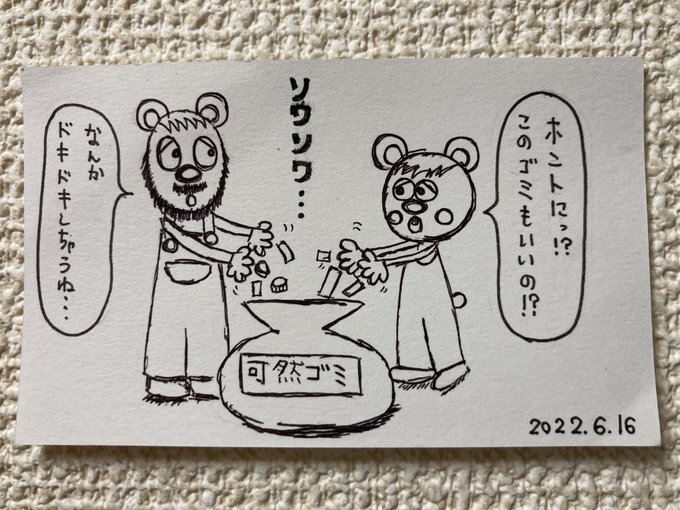 ホントにっ!?
このゴミもいいの!?
ソワソワ・・・
なんか
ドキドキしちゃうね・・・
可然ゴミ
2022.6.16